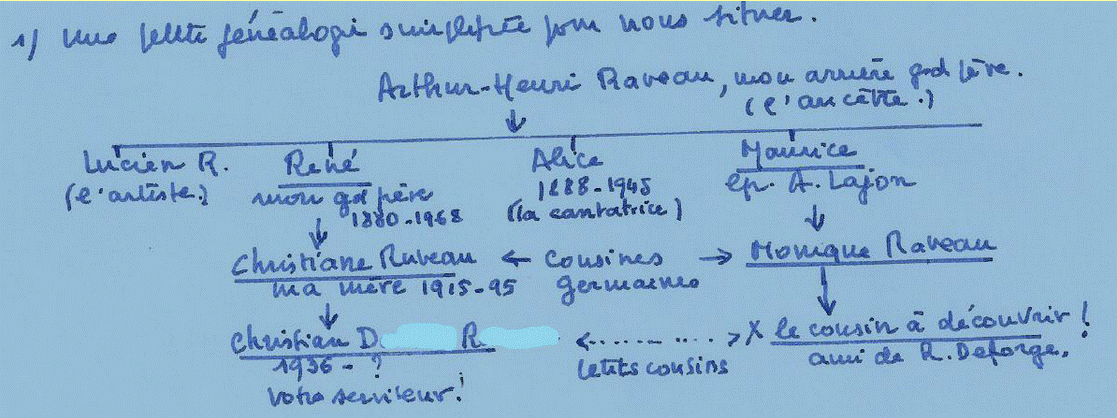 1) Une petite généalogie simplifiée pour nous situer.
Arthur-Henri Raveau, mon arrière gd père.
(l'ancêtre.)
Lucien R. René Alice Maurice
(l'artiste.) mon gd père 1888-1945 ep. A. Lajon
1880-1968 (la cantatrice)
Christiane Raveau ← cousines → Monique Raveau
ma mère 1915-95 germaines
Christian D R <.........> X le cousin à découvrir !
1936 - ? petits cousins ami de R. Deforge.
Votre serviteur !